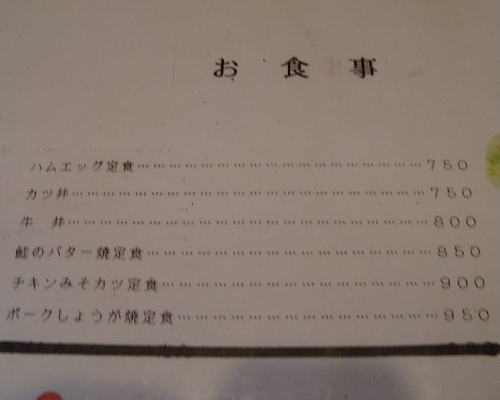 お食事
ハムエッグ定食…………………………………………750
カツ丼…………………………………………………750
牛 丼…………………………………………………800
鮭のバター焼定食……………………………………850
チキンみそカツ定食…………………………………900
ポークしょうが焼定食………………………………950